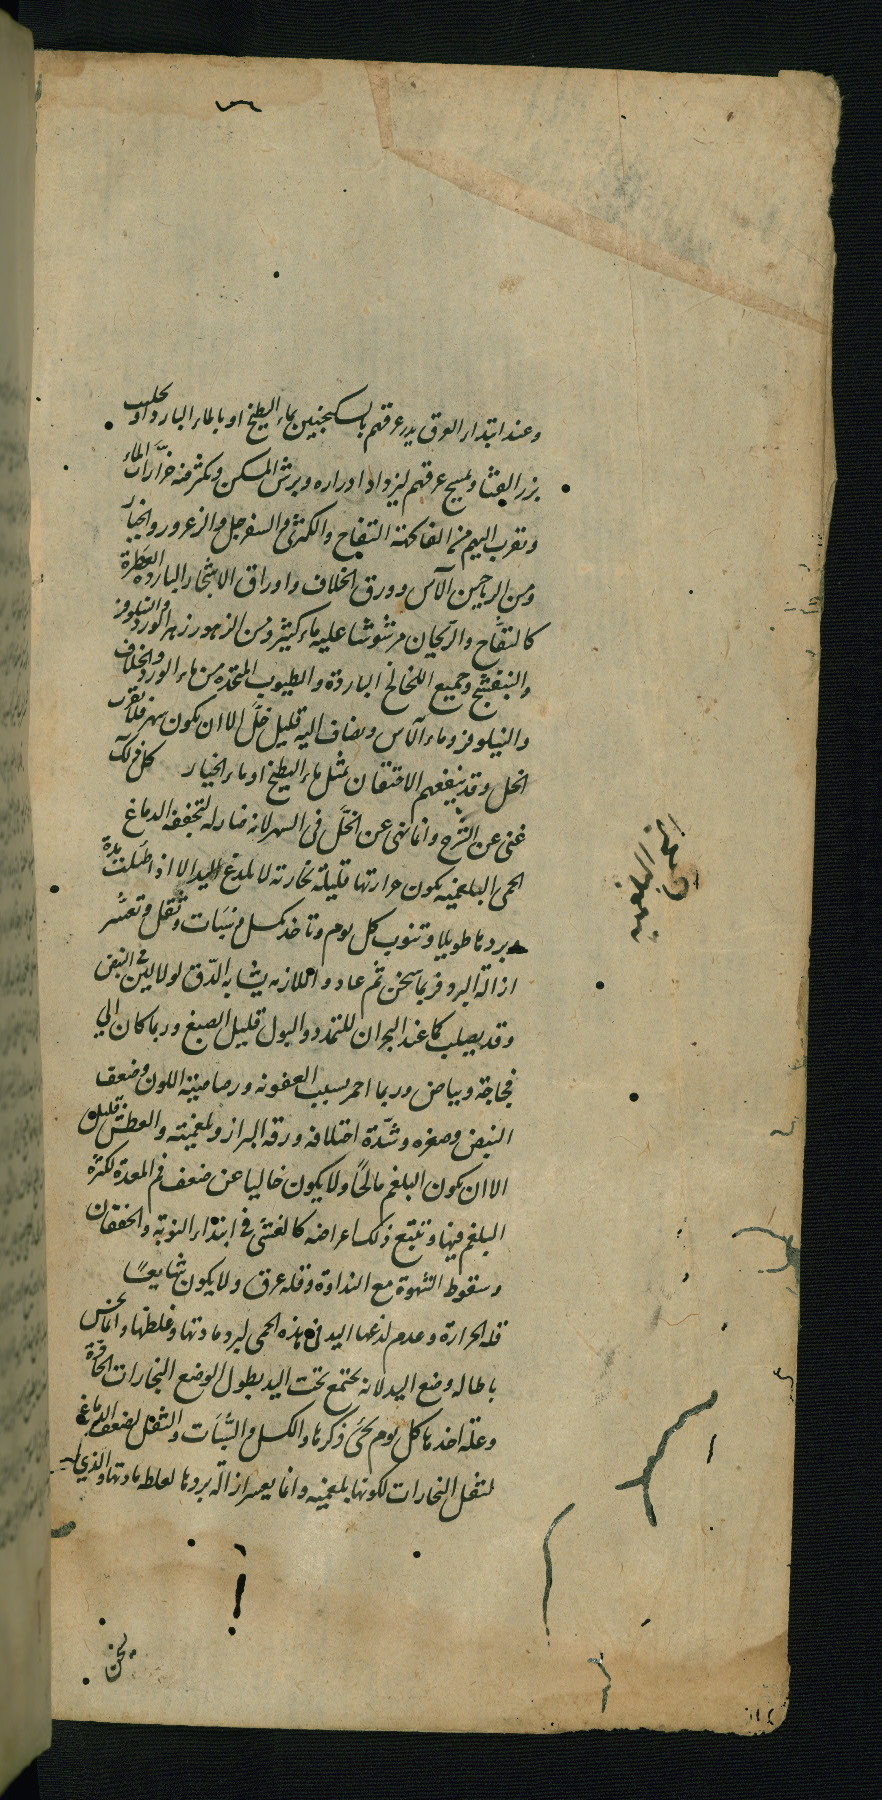 وعند ابتداء العرق يدر عرقهم بالسكنجبين بماء البطيخ او بالماء البارد او بحليب
بزر القثاء ويمسح عرقهم ليزداد ادراره ويرش المسكن ويكثر فيه خرّارات الماء
ويقرب اليهم من الفاكهة التفاح والكمثرى والسفرجل والزعرور والخيار
ومن الرياحين الآس وورق الخلاف واوراق الاشجار الباردة العطرة
كالتفاح والريحان مرشوشا عليه ماء كثير ومن الزهور زهر الورد والنيلوفر
والبنفسج وجميع اللخالخ الباردة والطيوب المتخذه من ماء الورد والخلاف
والنيلوفر وماء الآس ويضاف اليه قليل خل الا ان يكون سهر فلا يقرب
الخل وقد ينفعهم الاحتقان بمثل ماء البطيخ او ماء الخيار كل ذلك
غنى عن الشرح وانما نهى عن الخل في السهر لانه ضار له لتجفيفه الدماغ
الحمى البلغمية يكون حرارتها قليلة بخارية لا تلدغ اليد الا اذا اطيلت مدة
بردها طويلا وتنوب كل يوم وتاخذ بكسل وسبات وثقل وتعسر
ازالة البرد فربما سخن ثم عاد واللازمه يشابه الدق لولا لين في النبض
وقد يصلب كما عند البحران للتمدد والبول قليل الصبغ وربما كان الى
فجاجة وبياض وربما احمر بسبب العفونه ورصاصية اللون وضعف
النبض وصغره وشدة اختلافه ورقه البراز وبلغميته والعطش قليل
الا ان يكون البلغم مالحا ولا يكون خاليا عن ضعف فم المعدة لكثرة
البلغم فيها وتتبع ذلك اعراضه كالغشى في ابتداء النوبة والخفقان
وسقوط الشهوة مع النداوة وقله عرق ولا يكون شايعا
قله الحرارة وعدم لذعها اليد في هذه الحمى لبرد مادتها وغلظها وانما يحس
باطاله وضع اليد لانه يجتمع تحت اليد بطول الوضع البخارات الحارة
وعلة اخذها كل يوم يجئ ذكرها والكسل والسبات والثقل لضعف الدماغ
لثقل البخارات لكونها بلغميه وانما يعسر ازالة بردها لغلظ مادتها والذي
الحمى البلغمية